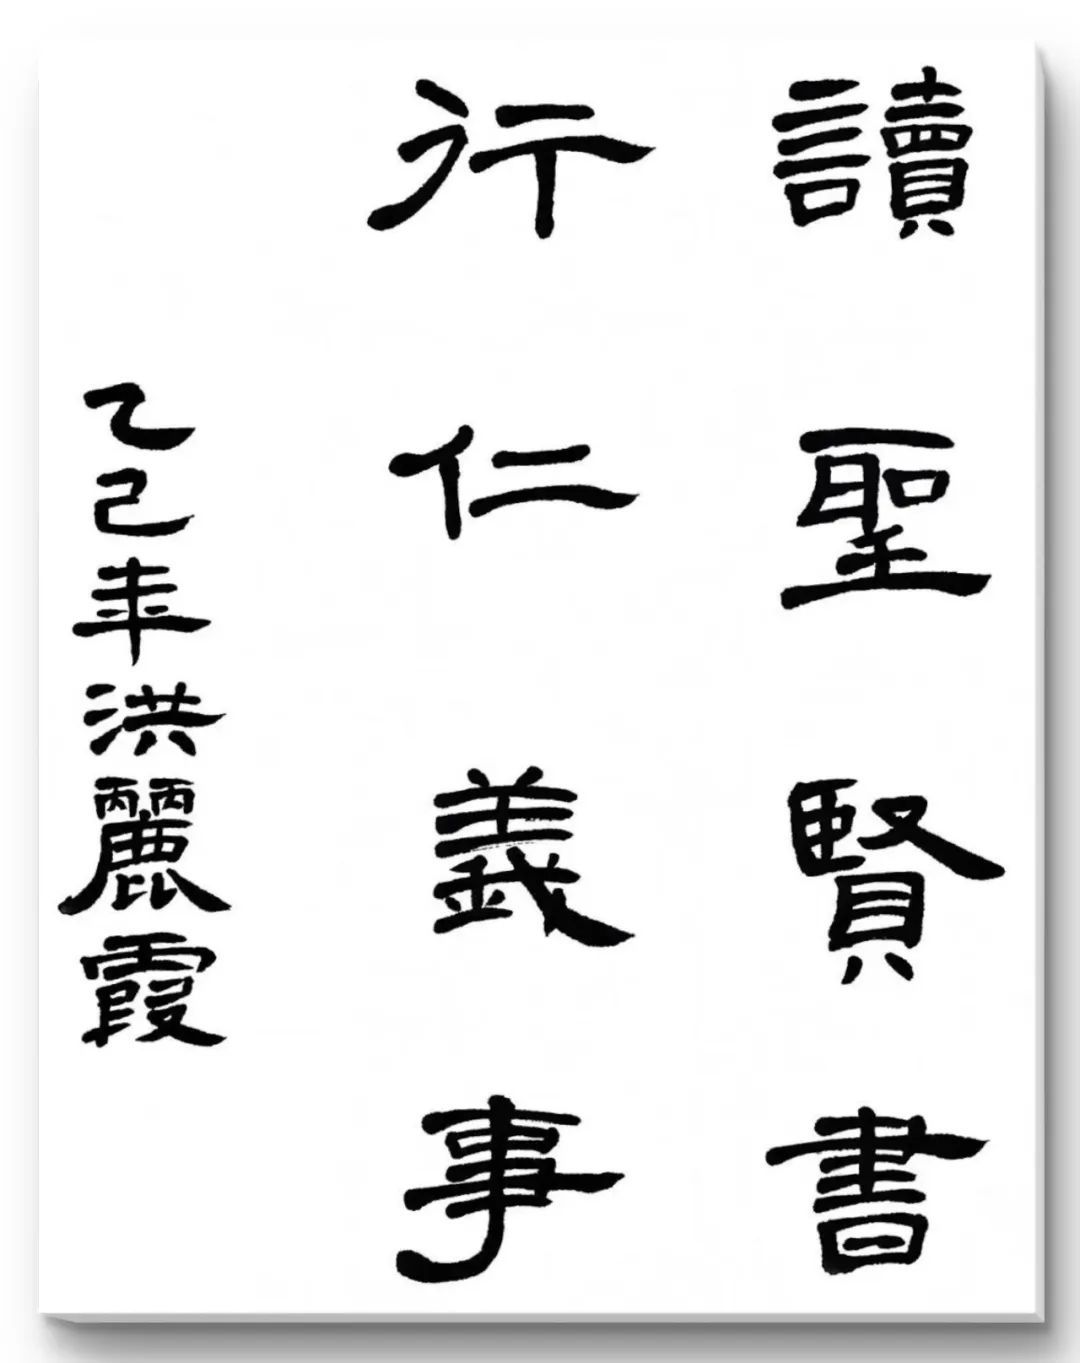 讀聖賢書
行仁義事
乙巳年洪麗霞